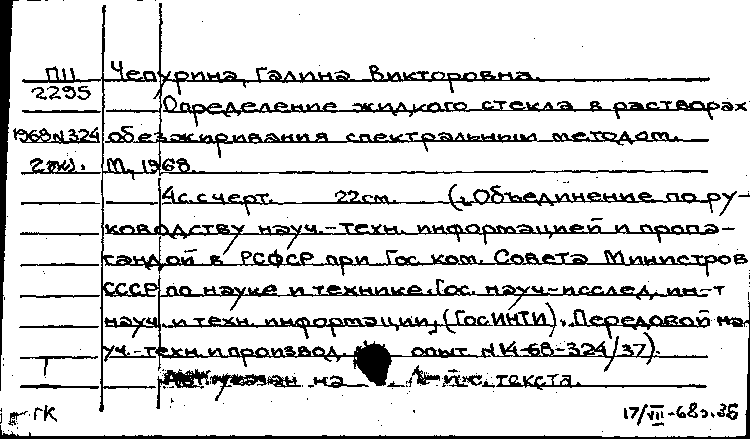 П11 Чепурина, Галина Викторовна.
2295 Определение жидкого стекла в растворах
1968N324 обезжиривания спектральным методом.
2экз. М., 1968.
4с. с черт. 22см. (Объединение по ру-
ководству науч.-техн. информацией и пропа-
гандой в РСФСР при Гос ком. Совета Министров
СССР по науке и технике. Гос. науч-исслед. ин-т
науч. и техн. информации, (ГосИНТИ). Передовой на-
уч.-техн и производ. опыт N14-68-324/37).
Авт. указан на й с. текста.
ГК 17/VII-68г.